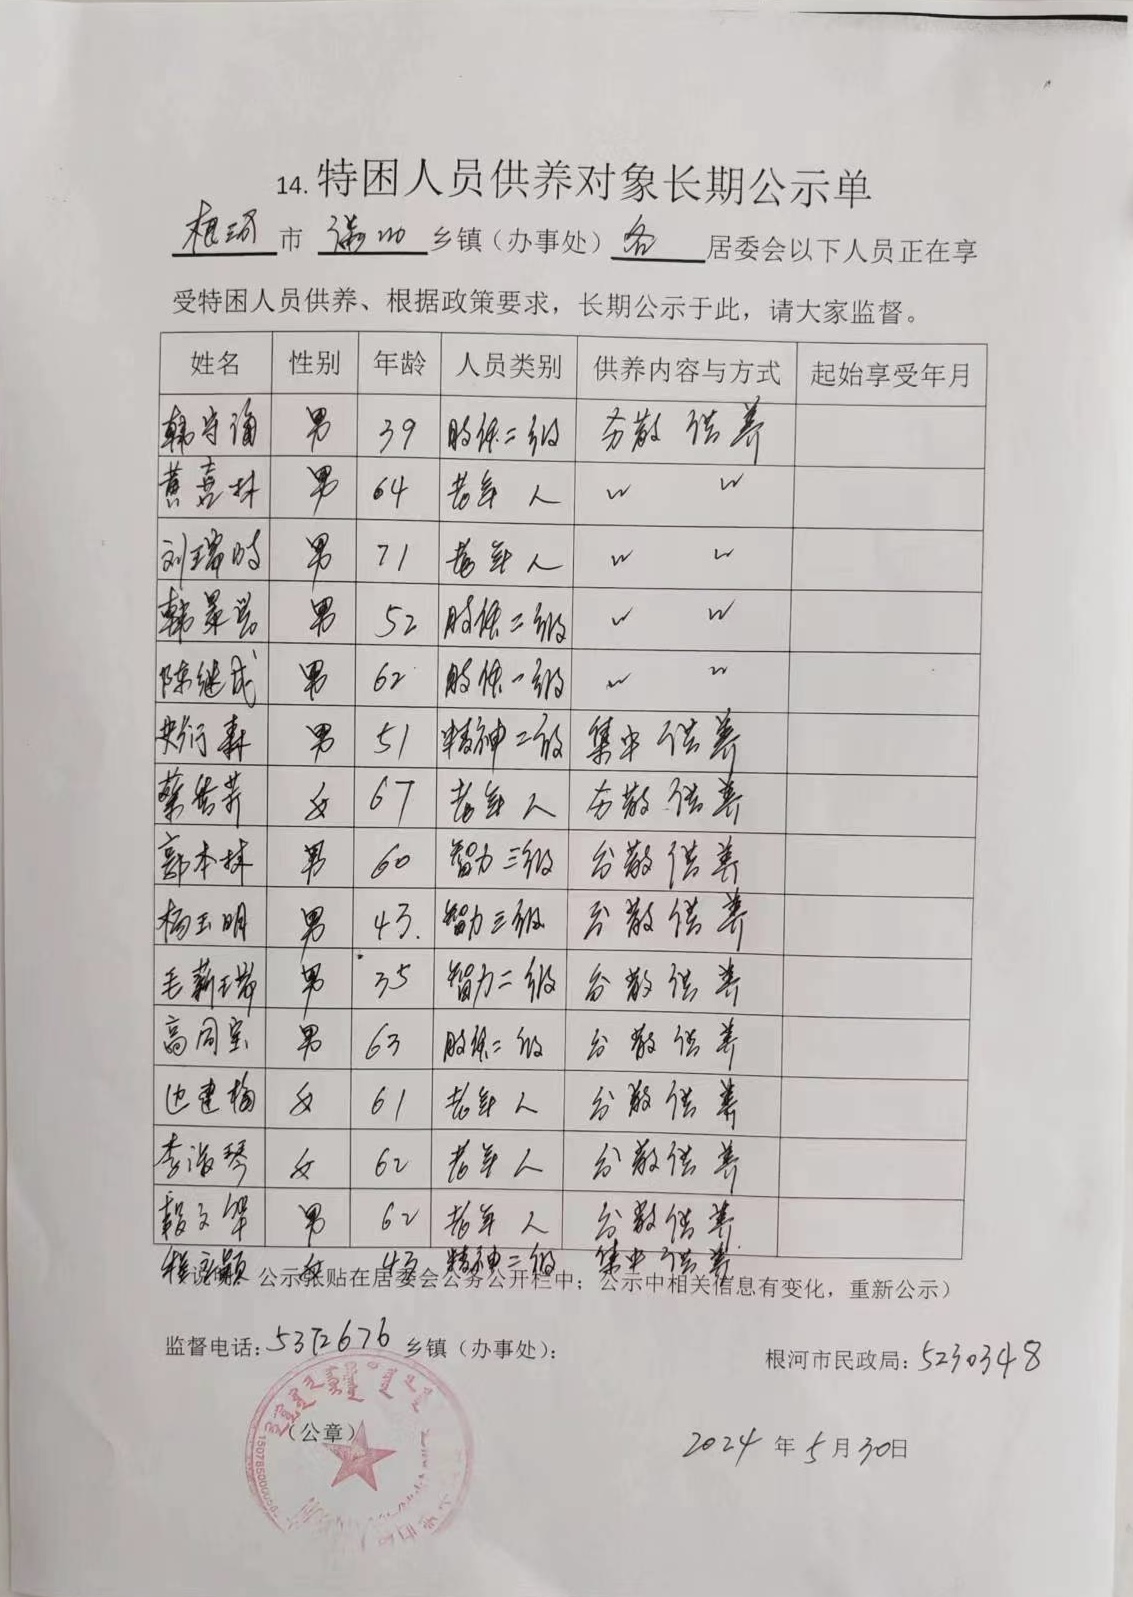 14. 特困人员供养对象长期公示单
根河 市 满归 乡镇（办事处） 各 居委会以下人员正在享
受特困人员供养、根据政策要求，长期公示于此，请大家监督。
姓名 性别 年龄 人员类别 供养内容与方式 起始享受年月
韩守海 男 39 肢体二级 分散供养
黄喜林 男 64 老年人 〃 〃
刘瑞 男 71 老年人 〃 〃
韩 男 52 肢体二级 〃 〃
陈继成 男 62 肢体一级 〃 〃
森 男 51 精神二级 集中供养
蔡 女 67 老年人 分散供养
郭本林 男 60 智力三级 分散供养
杨玉明 男 43. 智力三级 分散供养
毛薪瑞 男 35 智力二级 分散供养
高同宝 男 63 肢体二级 分散供养
边建梅 女 61 老年人 分散供养
李淑琴 女 62 老年人 分散供养
文 男 62 老年人 分散供养
程 颖 女 43 精神二级 集中供养
公示张贴在居委会公务公开栏中；公示中相关信息有变化，重新公示）
监督电话：5372676 乡镇（办事处）： 根河市民政局：5230348
（公章）
2024 年 5 月 30 日